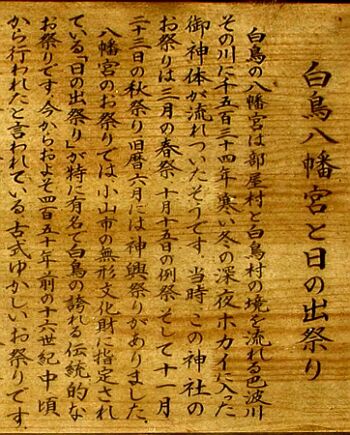 白鳥八幡宮と日の出祭り
白鳥の八幡宮は部屋村と白鳥村の境を流れる巴波川
その川に千五百三十四年寒い冬の深夜ホカイに入った
御神体が流れついたそうです。当時、この神社の
お祭りは三月の春祭、十月十五日の例祭、そして十一月
二十三日の秋祭り旧暦六月には神輿祭りがありました。
八幡宮のお祭りでは、小山市の無形文化財に指定され
ている「日の出祭り」が特に有名で白鳥の誇れる伝統的な
お祭りです。今からおよそ四百五十年前の十六世紀中頃、
から行われたと言われている古式ゆかしいお祭りです